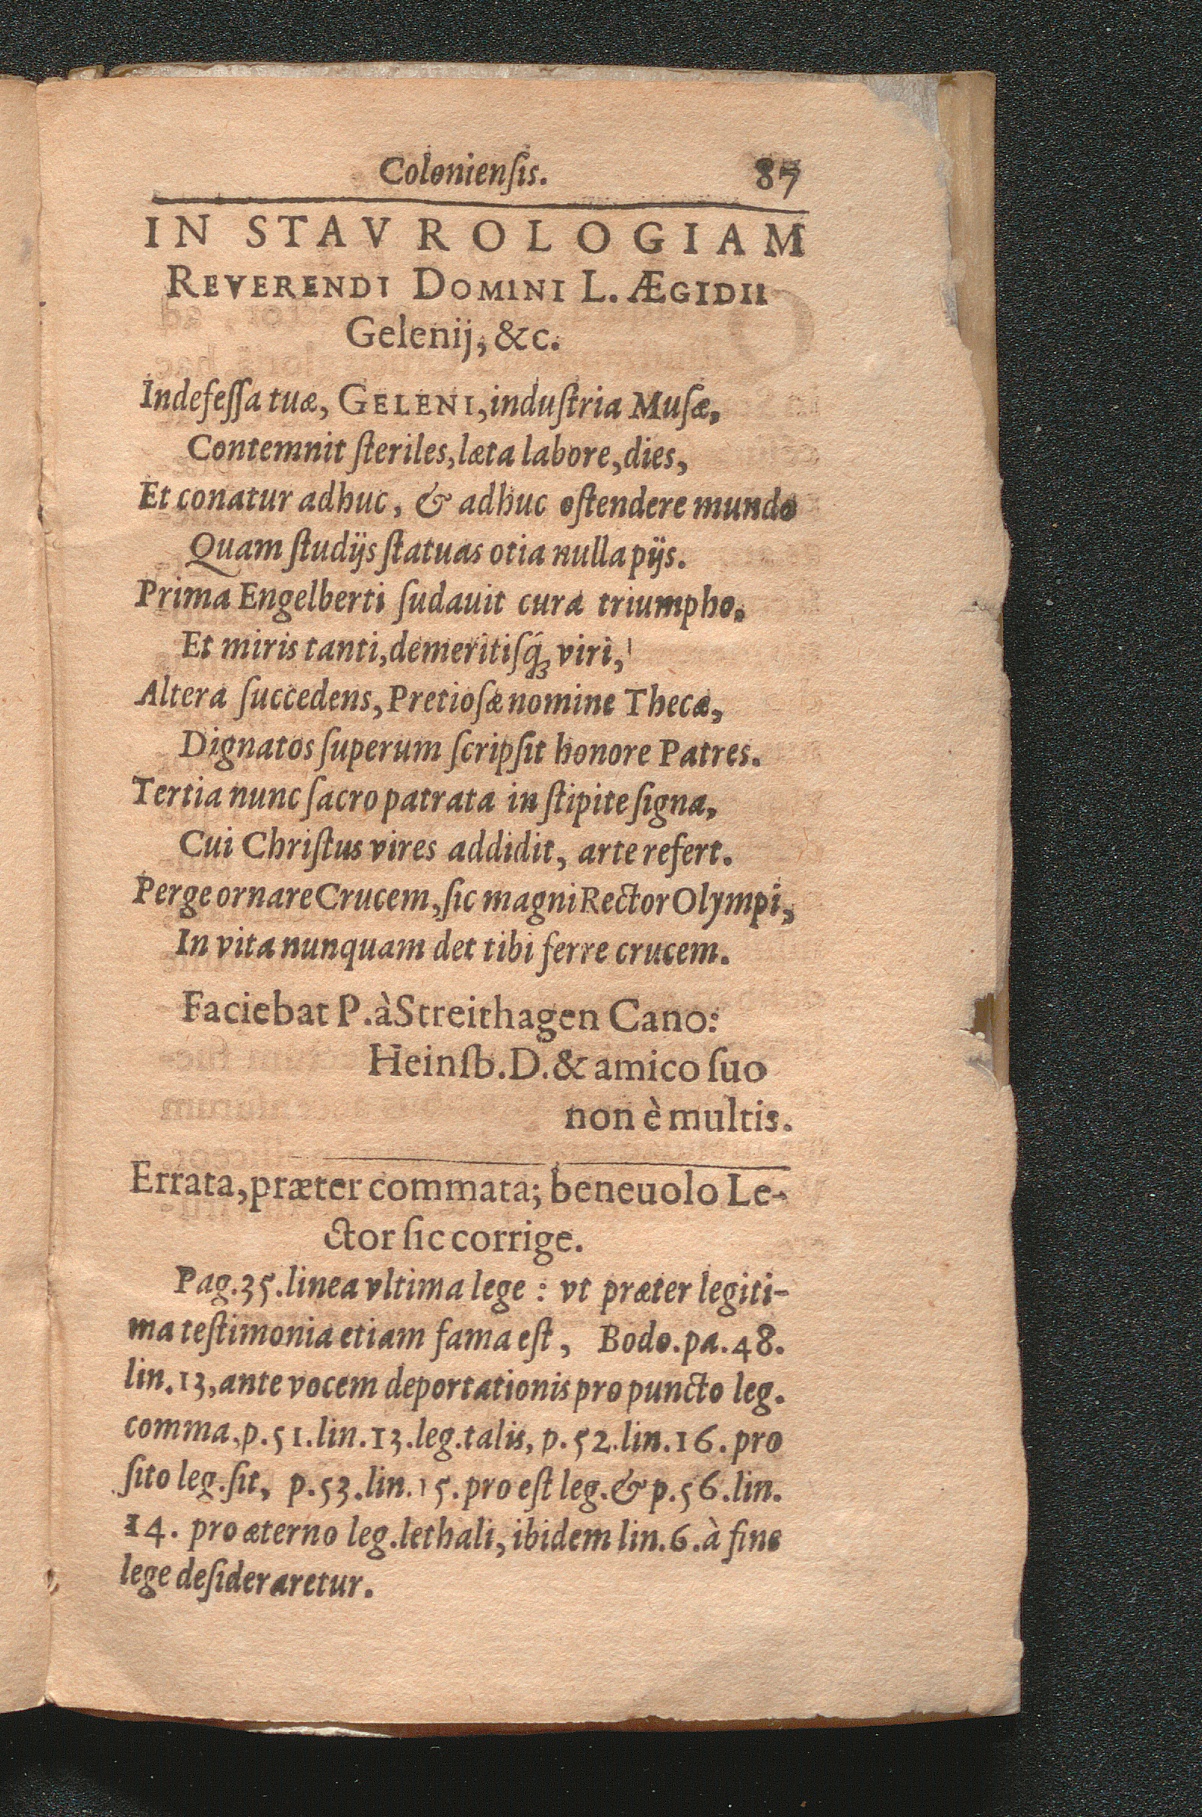 Coloniensis. 87
IN STAVROLOGIAM
REVERENDI DOMINI L. ÆGIDII
Gelenij, &c.
Indefeſſa tuæ, GELENI, induſtria Muſæ,
Contemnit ſteriles, læta labore, dies,
Et conatur adhuc, & adhuc oſtendere mundo
Quam ſtudijs ſtatuas otia nulla pijs.
Prima Engelberti ſudauit cura triumpho.
Et miris tanti, demeritiſq́ꝫ viri,
Altera ſuccedens, Pretioſæ nomine Thecæ,
Dignatos ſuperum ſcripſit honore Patres.
Tertia nunc ſacro patrata in ſtipite ſigna,
Cui Chriſtus vires addidit, arte refert.
Perge ornare Crucem, ſic magni Rector Olympi,
In vita nunquam det tibi ferre crucem.
Faciebat P. à Streithagen Cano:
Heinſb. D. & amico ſuo
non è multis.
Errata, præter commata; beneuolo Le-
ctor ſic corrige.
Pag. 35. linea vltima lege : vt præter legiti-
ma teſtimonia etiam fama eſt, Bodo. pa. 48.
lin. 13, ante vocem deportationis pro puncto leg.
comma, p. 51. lin. 13. leg. talis, p. 52. lin. 16. pro
ſito leg. ſit, p. 53. lin. 15. pro eſt leg. & p. 56. lin.
14. pro æterno leg. lethali, ibidem lin. 6. à fine
lege deſideraretur.